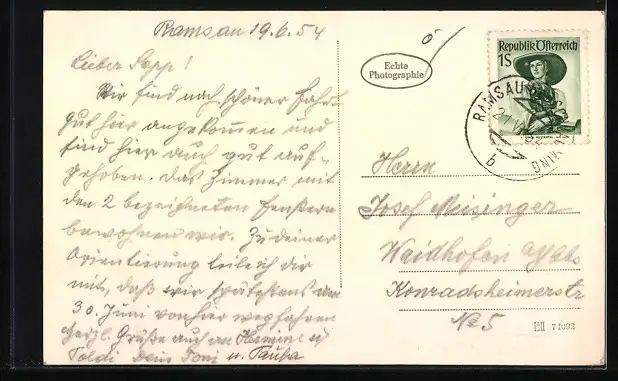 Ramsau 19.6.54
Lieber Sepp!
Wir sind nach schöner Fahrt
gut hier angekommen und
sind hier auch gut auf-
gehoben. Das Zimmer mit
den 2 bezeichneten Fenstern
bewohnen wir. Zu deiner
Orientierung teile ich dir
mit, daß wir spätestens am
30. Juni von hier wegfahren
Herzl. Grüße auch an Hermine u
Poldi Dein Toni u.
Echte
Photographie
Republik Österreich
1S
RAMSAU
b
Herrn
Josef Meisinger
Waidhofen a/Ybbs
Konradsheimerstr
No 5
74092